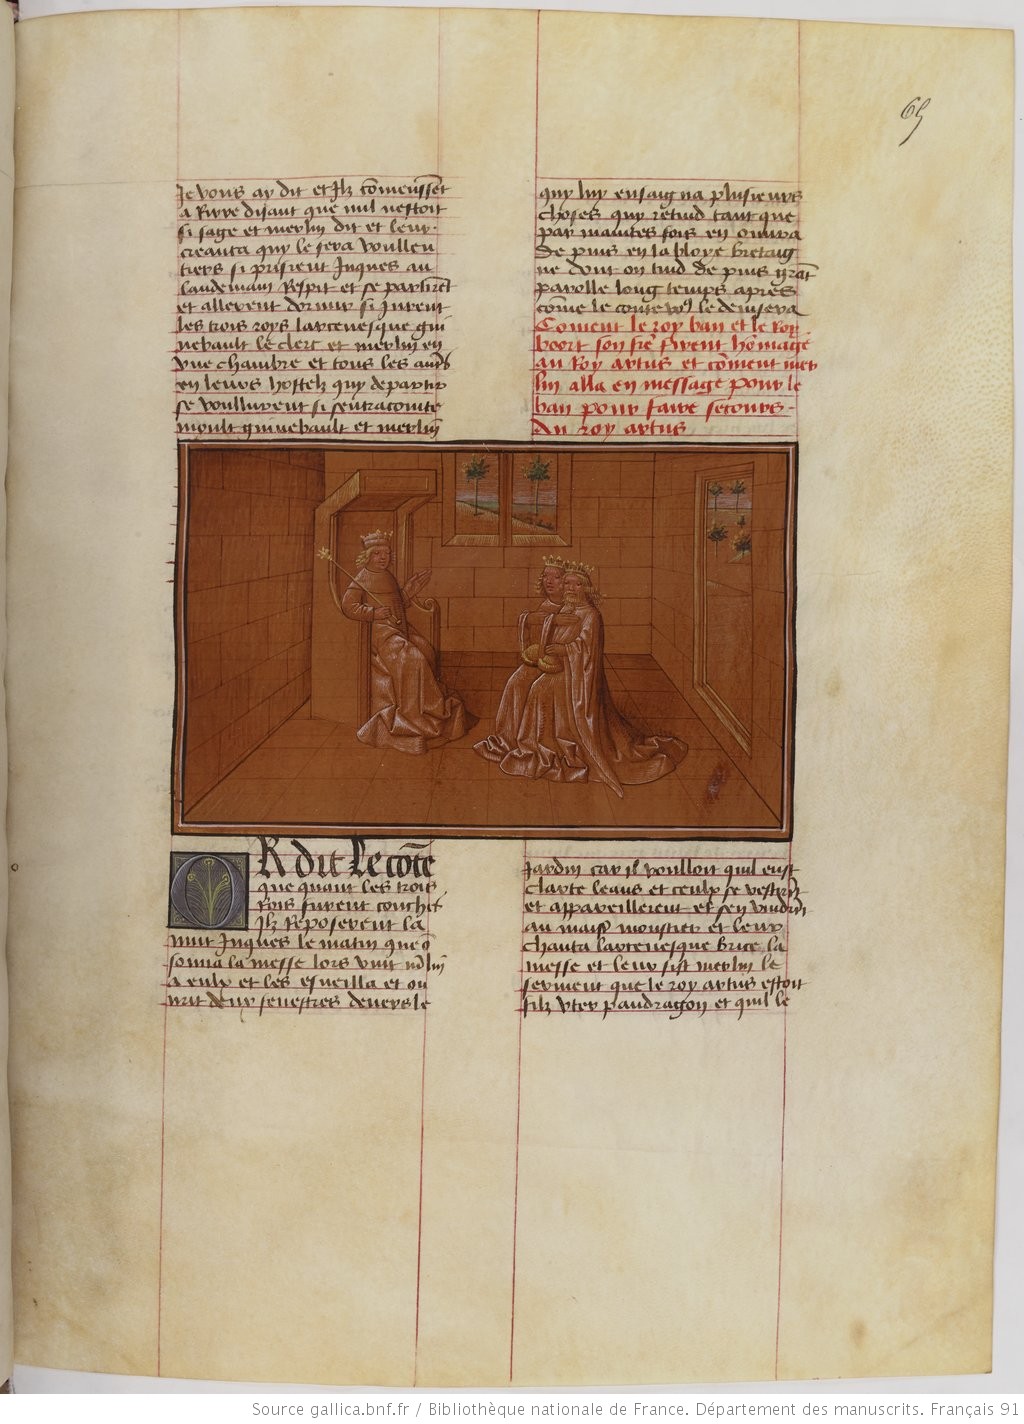 65
Je vous ay dit et Ilz cōmensēt
a Rirre disant que nul nestoit
si sage et merlin dit et leur
creanta quy le sera voullen
tiers si prisrent Jusques au
landemain Respit et se partirēt
et allerent dormir si Jurent
les trois roys larcevesque gui
nebault le clerc et merlin en
vne chambre et tous les autrēs
en leurs hostelz quy departir
se voullurent si sentracointe
moult guinebault et merlin
quy luy ensaigna plusieurs
choses quy retind tant que
par maintes fois en ouvra
de puis en la bloye bretaig
ne dont on tind de puis grāt
parolle long temps apres
cōme le conte le devisera
Cōment le roy ban et le Roy
boort son frē firent hōmage
au Roy artus et cōment mer
lin alla en message pour le
ban pour faire secours
du roy artus
OR dit le cōte
que quant les trois
Rois furent couchez
Ilz Reposerent la
nuit Jusques le matin que ō
sonna la messe lors vint mlin
a eulx et les esveilla et ou
vrit deux fenestres devers le
Jardin car il voulloit quil eust
clarte leans et ceulx se vestirēt
et appareillerent et sen vindrēt
au maisē moustier et leur
chanta larcevesque brice la
messe et leur fist merlin le
serment que le roy artus estoit
filz vter pandragon et quil le
Source gallica.bnf.fr / Bibliothèque nationale de France. Département des manuscrits. Français 91